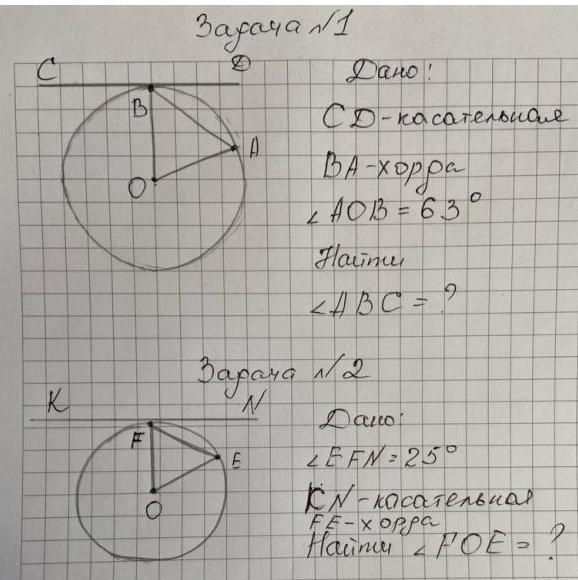 Задача №1
C D
Дано:
B
CD-касательная
A
BA-хорда
O
∠AOB = 63°
Найти
∠ABC = ?
Задача №2
K N
Дано:
F
E
∠EFN = 25°
KN-касательная
O
FE-хорда
Найти ∠FOE = ?